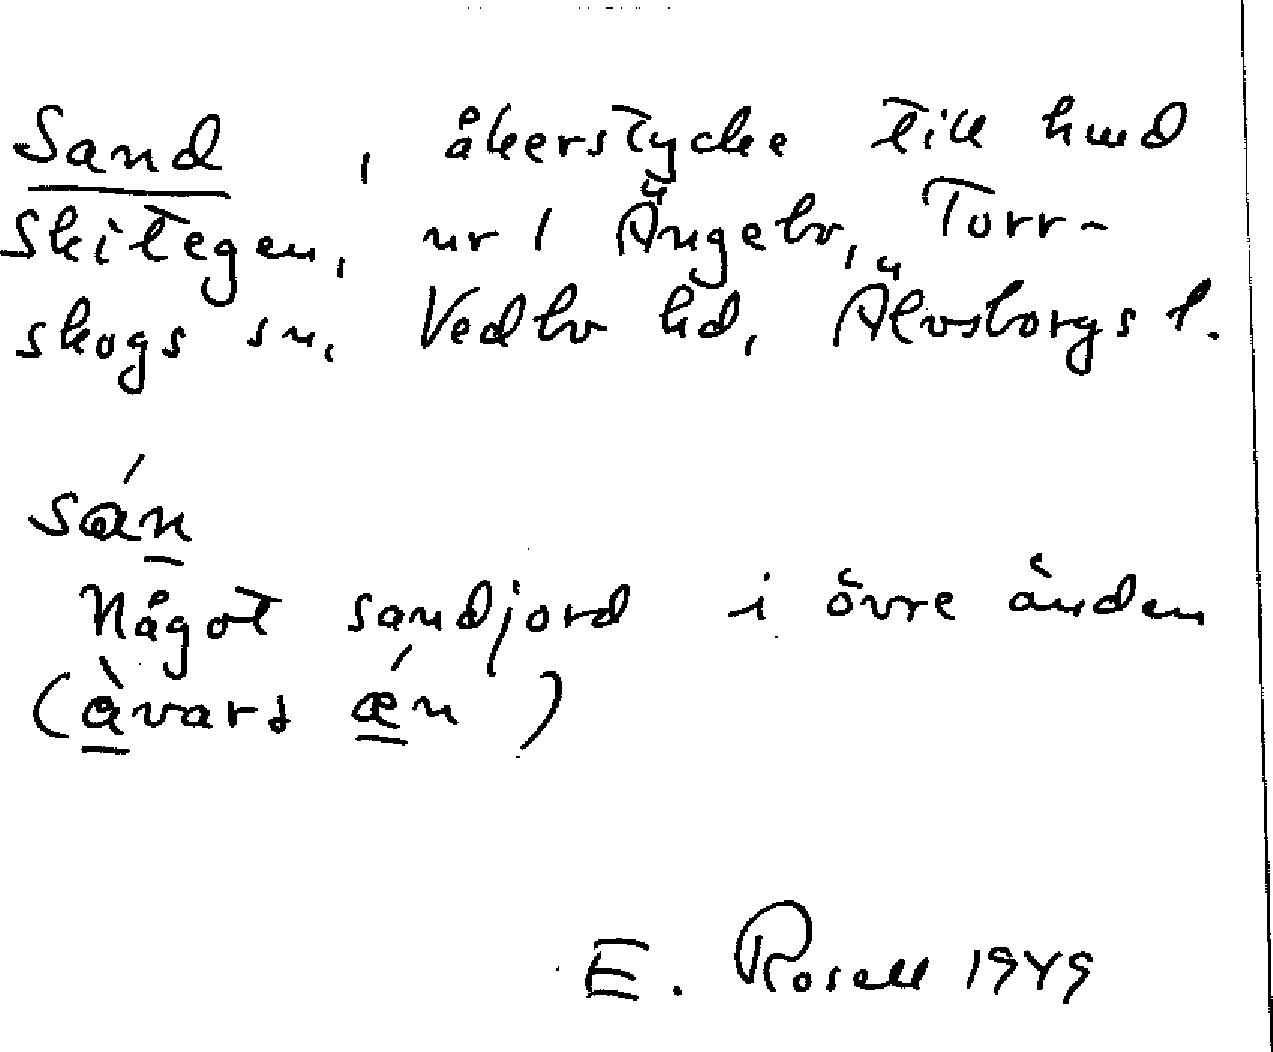 Sand , åkerstycke till hmd
Skitegen, nr 1 Ängebo, Torr-
skogs sn, Vedbo hd, Älvsborgs l.
sán
Något sandjord i övre änden
(àvars ǽn)
E. Rosell 1949